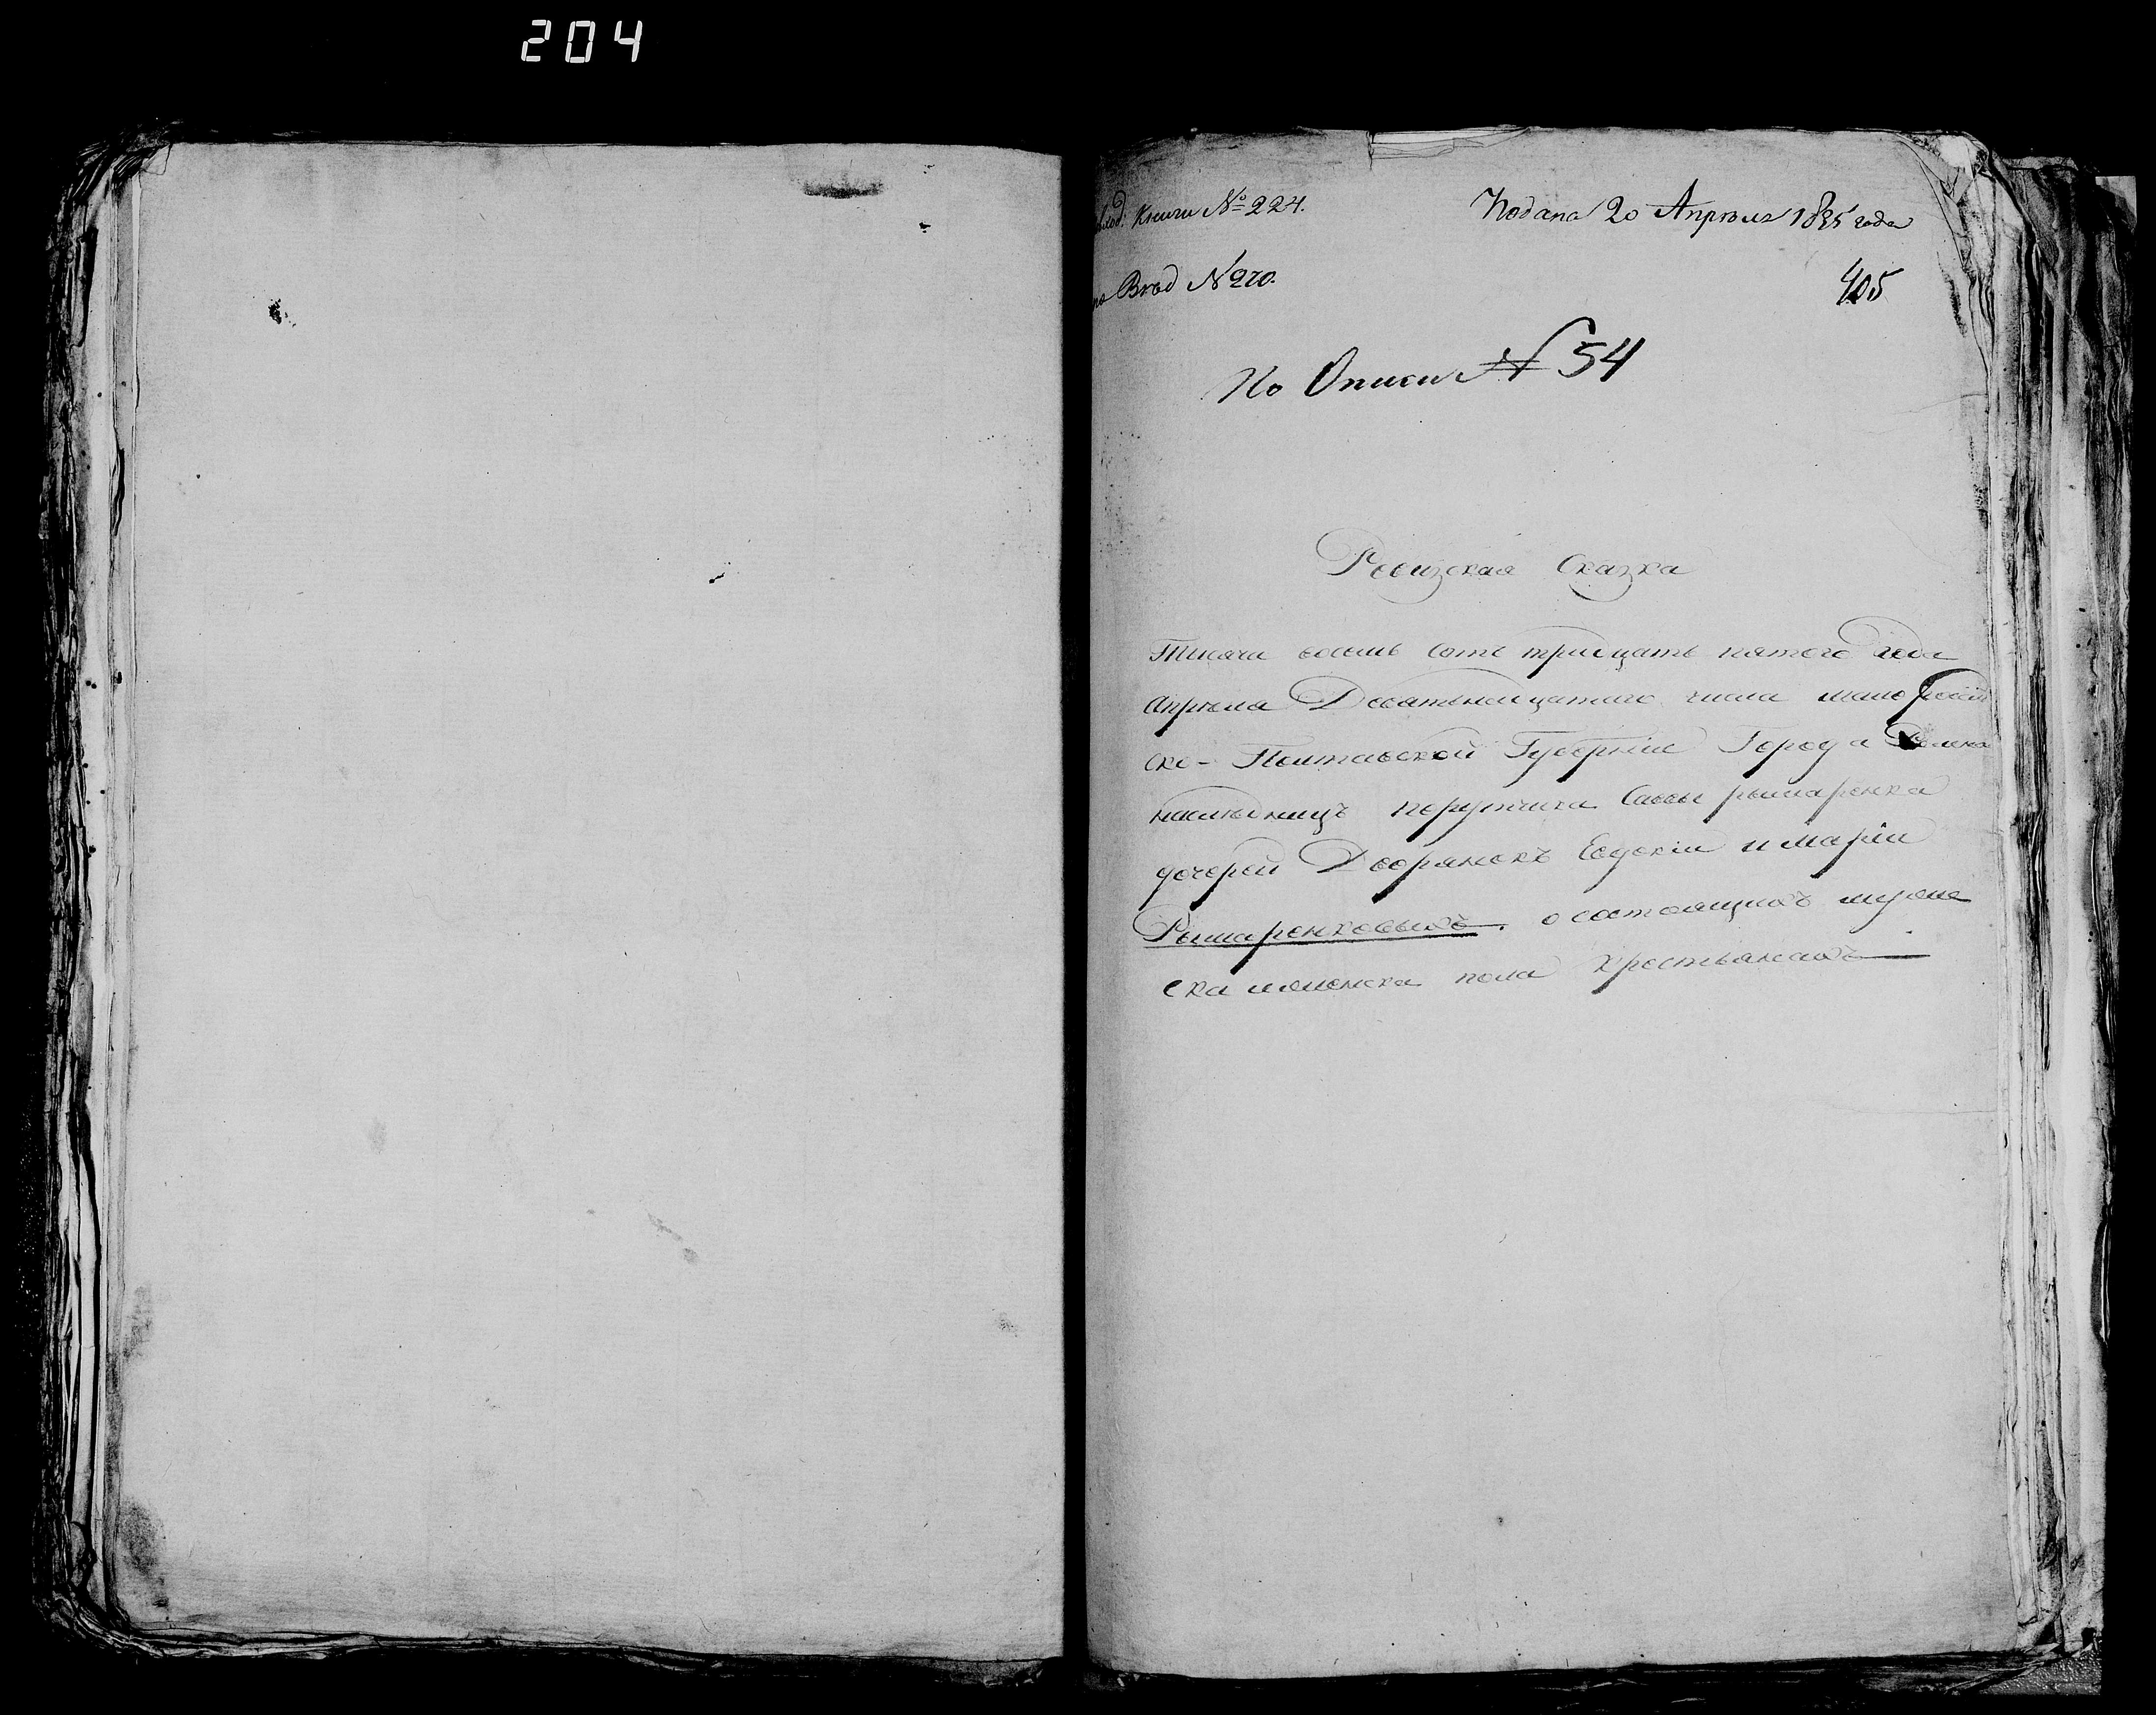 204
Книги № 224.
Подана 20 Апрѣля 1835 года
No 270.
405
По Описи № 54
Ревизская Сказка
Тысяча восемь сотъ тридцать пятого года
апрѣля Девятнадцатаго числа мало россій
ско - Полтавской Губерніи Города
наслѣдницъ порутчика Саввы рымаренка
дочерей Дворянокъ Евдокіи и Маріи
Рымаренковыхъ. о состоящихъ мужес
ка и женска пола крестьянахъ